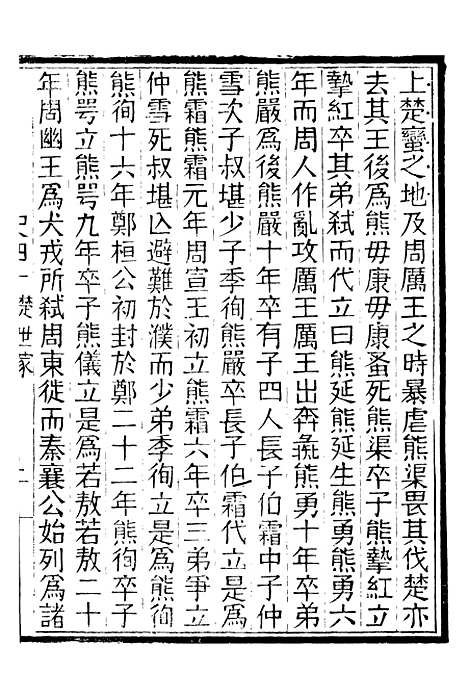 上楚蠻之地及周厲王之時暴虐熊渠畏其伐楚亦
去其王後爲熊毋康毋康蚤死熊渠卒子熊摯紅立
摯紅卒其弟弒而代立曰熊延熊延生熊勇熊勇六
年而周人作亂攻厲王厲王出奔彘熊勇十年卒弟
熊嚴爲後熊嚴十年卒有子四人長子伯霜中子仲
雪次子叔堪少子季徇熊嚴卒長子伯霜代立是爲
熊霜熊霜元年周宣王初立熊霜六年卒三弟爭立
仲雪死叔堪亾避難於濮而少弟季徇立是爲熊徇
熊徇十六年鄭桓公初封於鄭二十二年熊徇卒子
熊咢立熊咢九年卒子熊儀立是爲若敖若敖二十
年周幽王爲犬戎所弒周東徙而秦襄公始列爲諸
史四十 楚世家 二